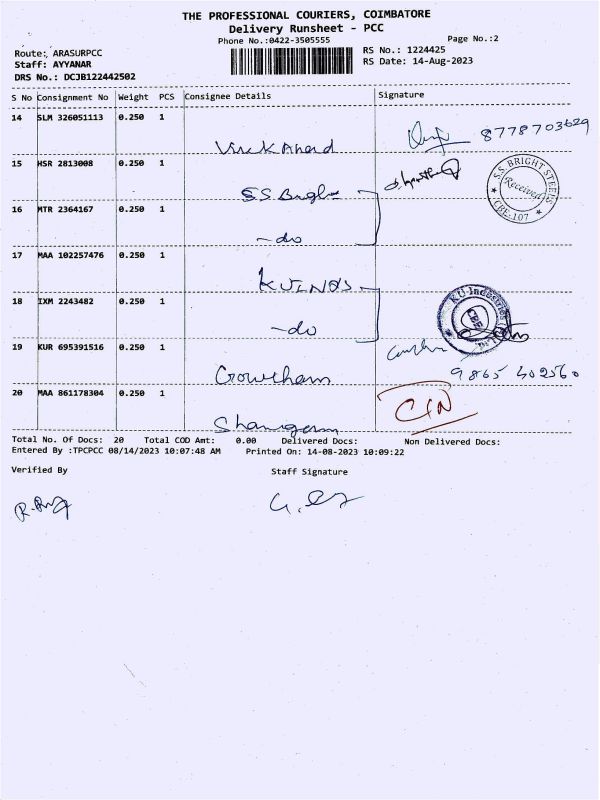 THE PROFESSIONAL COURIERS, COIMBATORE
Delivery Runsheet - PCC
Phone No.:0422-3505555
Page No.:2
Route: ARASURPCC
RS No.: 1224425
Staff: AYYANAR
RS Date: 14-Aug-2023
DRS No.: DCJB122442502
S No Consignment No Weight PCS Consignee Details Signature
14 SLM 326051113 0.250 1
8778703629
Vivek Anand
15 HSR 2813008 0.250 1
S.S. BRIGHT STEELS
Received
CBE.107
S.S. Bright
16 MTR 2364167 0.250 1
-do
17 MAA 102257476 0.250 1
18 IXM 2243482 0.250 1
KU Industries
CBE
-do
19 KUR 695391516 0.250 1
9865402560
Gowtham
20 MAA 861178304 0.250 1
Total No. Of Docs: 20 Total COD Amt: 0.00 Delivered Docs: Non Delivered Docs:
Entered By :TPCPCC 08/14/2023 10:07:48 AM Printed On: 14-08-2023 10:09:22
Verified By Staff Signature